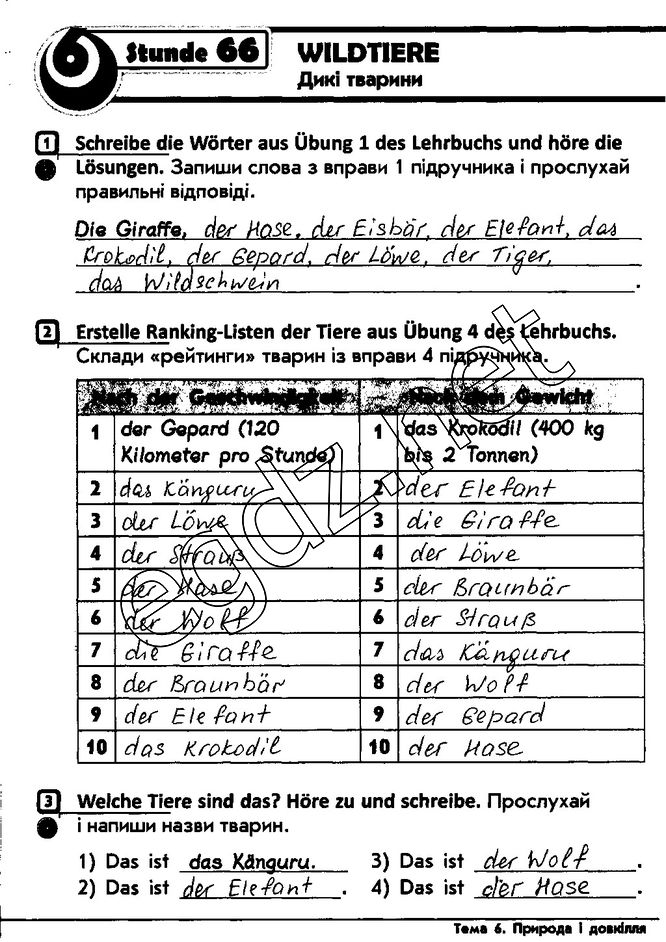 6 Stunde 66 WILDTIERE
Дикі тварини
1 Schreibe die Wörter aus Übung 1 des Lehrbuchs und höre die
Lösungen. Запиши слова з вправи 1 підручника і прослухай
правильні відповіді.
Die Giraffe, der Hase, der Eisbär, der Elefant, das
Krokodil, der Gepard, der Löwe, der Tiger,
das Wildschwein.
2 Erstelle Ranking-Listen der Tiere aus Übung 4 des Lehrbuchs.
Склади «рейтинги» тварин із вправи 4 підручника.
Nach der Geschwindigkeit Nach dem Gewicht
1 der Gepard (120 1 das Krokodil (400 kg
Kilometer pro Stunde) bis 2 Tonnen)
2 das Känguru 2 der Elefant
3 der Löwe 3 die Giraffe
4 der Strauß 4 der Löwe
5 der Hase 5 der Braunbär
6 der Wolf 6 der Strauß
7 die Giraffe 7 das Känguru
8 der Braunbär 8 der Wolf
9 der Elefant 9 der Gepard
10 das Krokodil 10 der Hase
egdz.net
3 Welche Tiere sind das? Höre zu und schreibe. Прослухай
і напиши назви тварин.
1) Das ist das Känguru. 3) Das ist der Wolf.
2) Das ist der Elefant. 4) Das ist der Hase.
Тема 6. Природа і довкілля